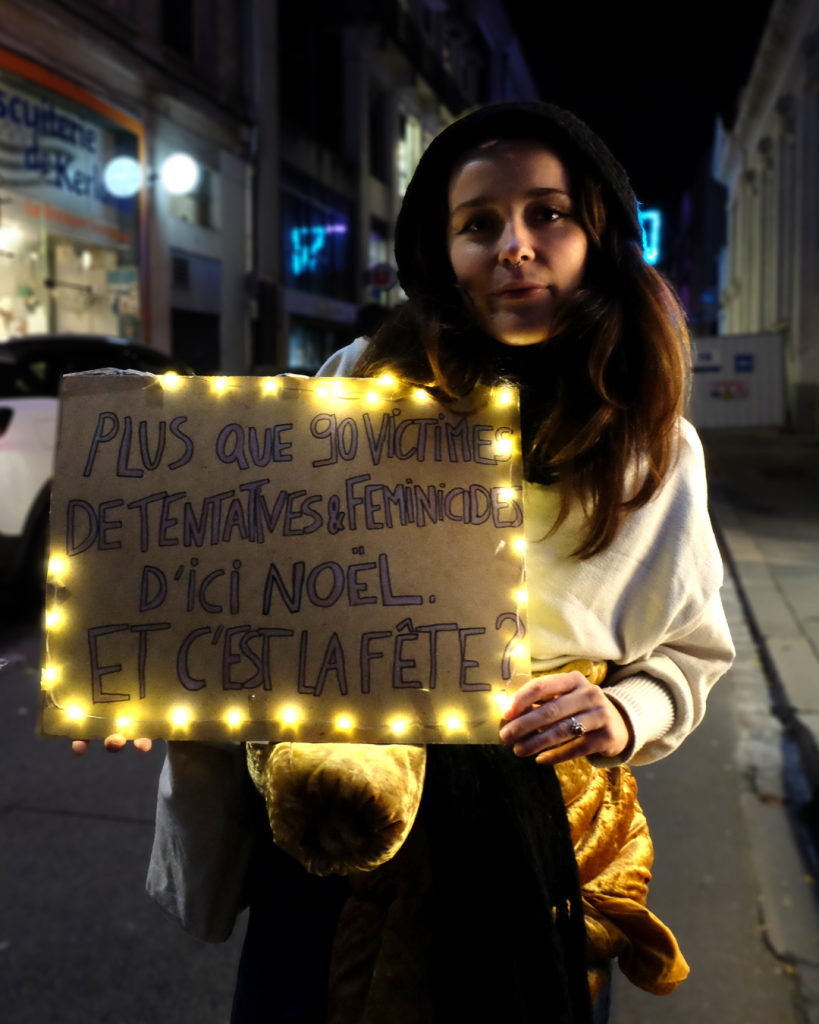 scuiterie
de Kerl
PLUS QUE 90 VICTIMES
DE TENTATIVES & FEMINICIDES
D'ICI NOËL.
ET C'EST LA FÊTE ?